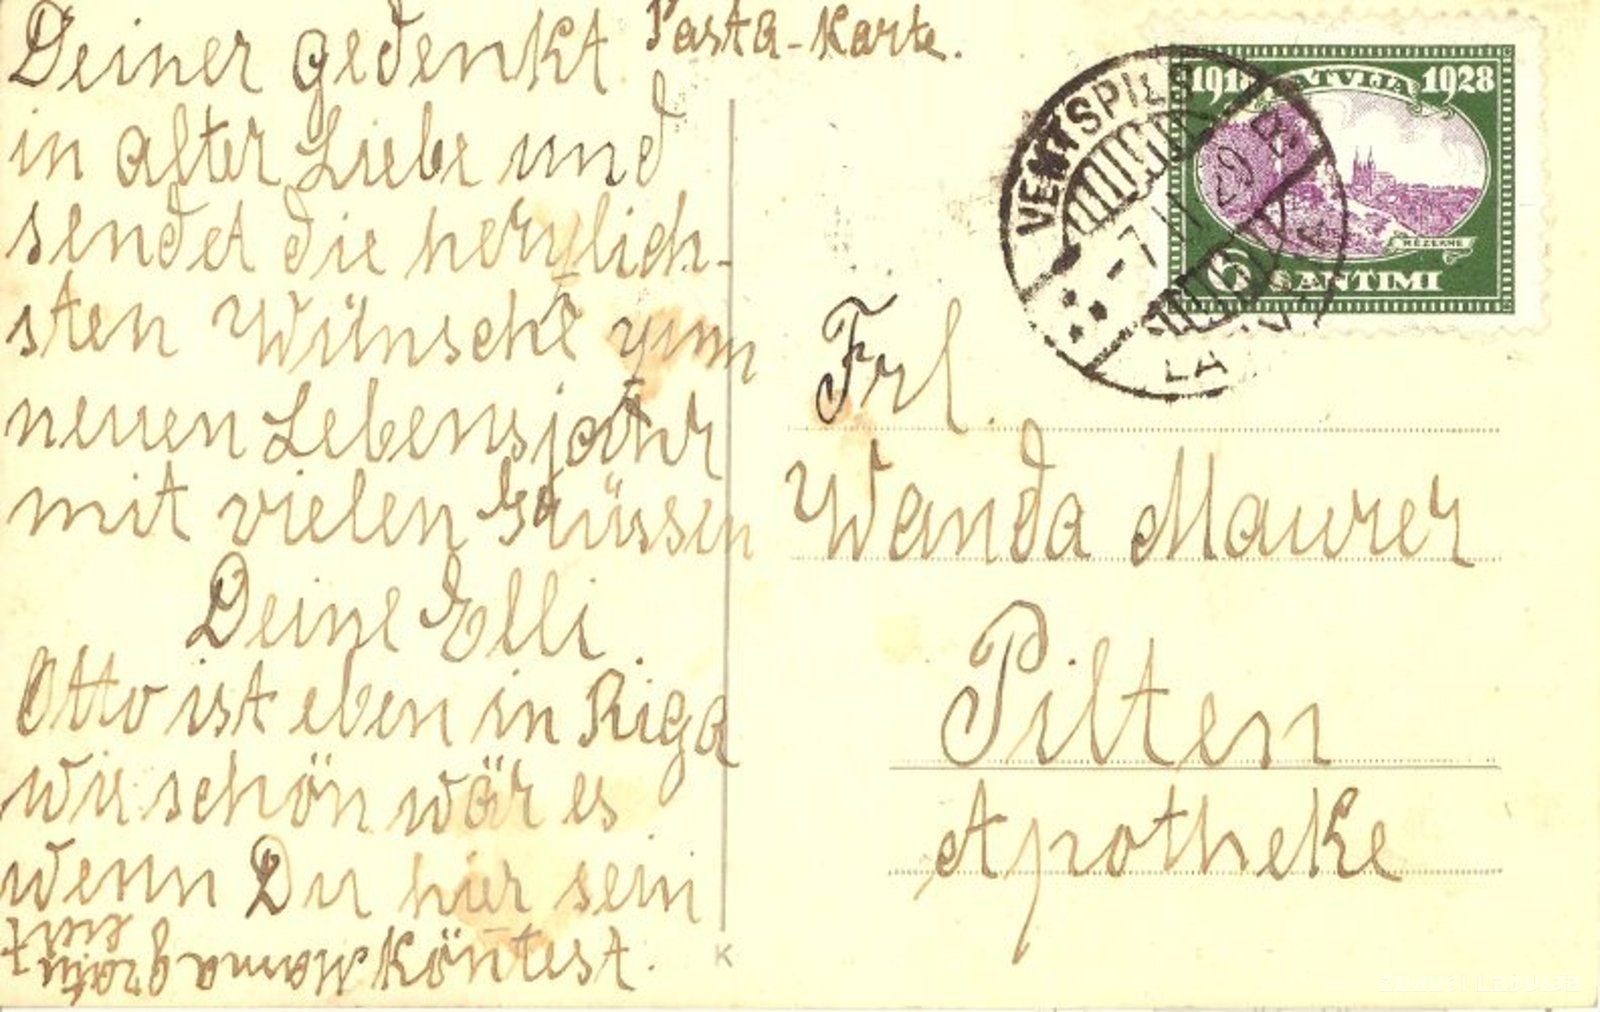 Deiner gedenkt
in alter Liebe und
sendet die herzlich-
sten Wünsche zum
neuen Lebensjahr
mit vielen Grüssen
Deine Elli
Otto ist eben in Riga
wie schön wär es
wenn Du hier sein
köntest.
Mama gratu
liert
Pasta-Karte.
VENTSPILS
-7 29 B
LATVIJA
1918 LATVIJA 1928
RĒZEKNE
6 SANTIMI
Frl.
Wanda Maurer
Pilten
Apotheke
K